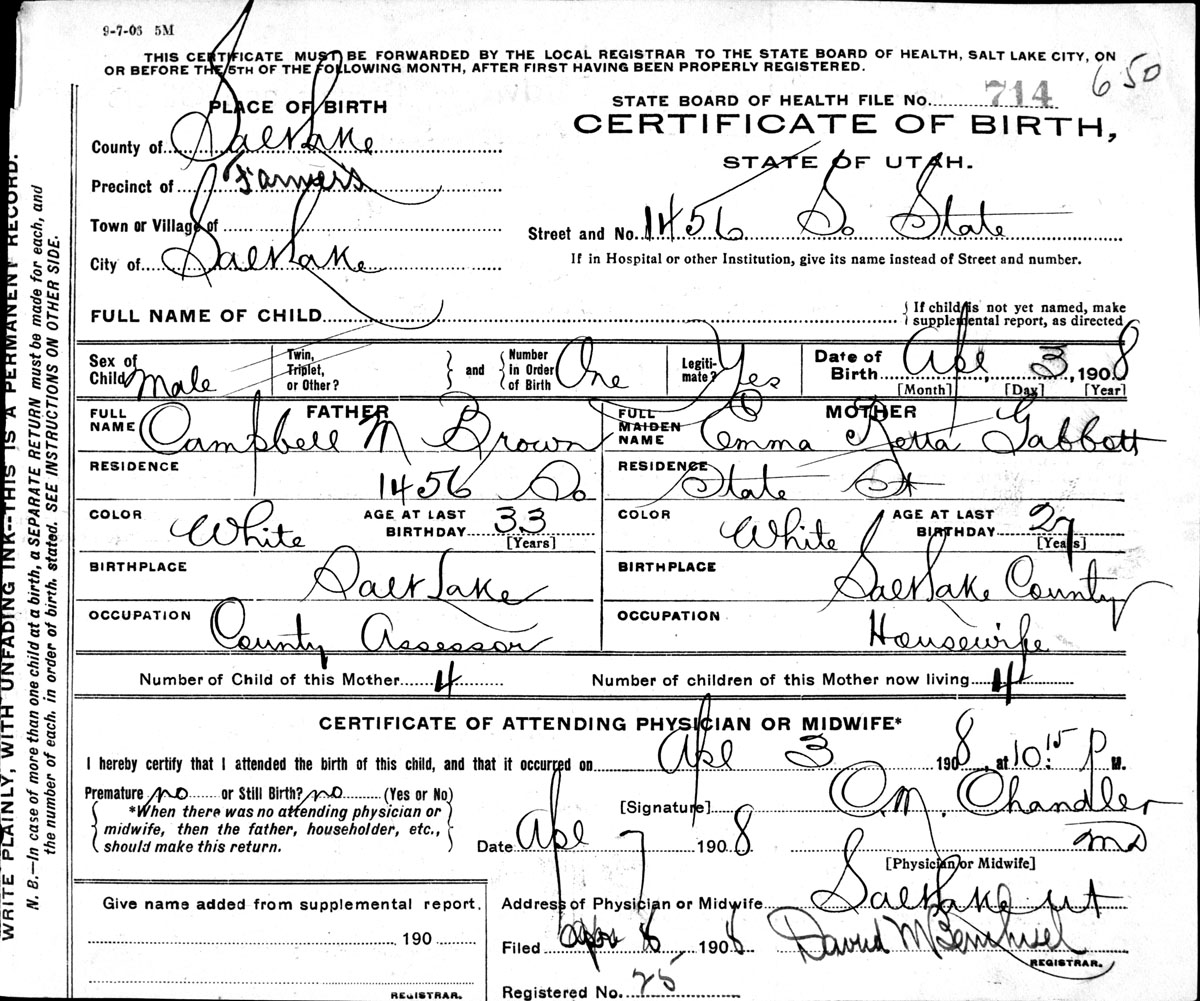 9-7-03 5M
THIS CERTIFICATE MUST BE FORWARDED BY THE LOCAL REGISTRAR TO THE STATE BOARD OF HEALTH, SALT LAKE CITY, ON
OR BEFORE THE 5TH OF THE FOLLOWING MONTH, AFTER FIRST HAVING BEEN PROPERLY REGISTERED.
650
PLACE OF BIRTH
County of Salt Lake
Precinct of Farmers
Town or Village of
City of Salt Lake
STATE BOARD OF HEALTH FILE NO. 714
CERTIFICATE OF BIRTH,
STATE OF UTAH.
Street and No. 1456 So State
If in Hospital or other Institution, give its name instead of Street and number.
FULL NAME OF CHILD
If child is not yet named, make
supplemental report, as directed
Sex of Child Male
Twin, Triplet, or Other?
and
Number in Order of Birth One
Legiti-mate? Yes
Date of Birth Apl 3, 1908
[Month] [Day] [Year]
FATHER
FULL NAME Campbell M Brown
MOTHER
FULL MAIDEN NAME Emma Retta Gabbott
RESIDENCE 1456 So
RESIDENCE State St
COLOR White AGE AT LAST BIRTHDAY 33 [Years]
COLOR White AGE AT LAST BIRTHDAY 27 [Years]
BIRTHPLACE Salt Lake
BIRTHPLACE Salt Lake County
OCCUPATION County Assessor
OCCUPATION Housewife
Number of Child of this Mother 4 Number of children of this Mother now living 4
CERTIFICATE OF ATTENDING PHYSICIAN OR MIDWIFE*
I hereby certify that I attended the birth of this child, and that it occurred on Apl 3 1908, at 10:15 P M.
Premature no or Still Birth? no (Yes or No)
*When there was no attending physician or
midwife, then the father, householder, etc.,
should make this return.
[Signature] O.M. Chandler
Date Apl 7 1908 MD
[Physician or Midwife]
Address of Physician or Midwife Salt Lake ut
Filed Apr 8, 1908 David M
REGISTRAR.
Registered No. 75
Give name added from supplemental report.
190
REGISTRAR.
WRITE PLAINLY, WITH UNFADING INK--THIS IS A PERMANENT RECORD.
N. B.—In case of more than one child at a birth, a SEPARATE RETURN must be made for each, and
the number of each, in order of birth, stated. SEE INSTRUCTIONS ON OTHER SIDE.